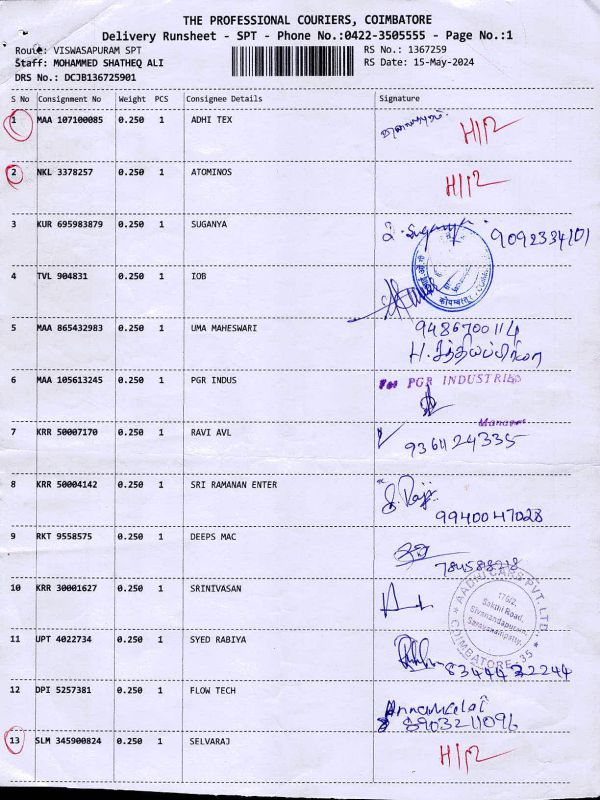 THE PROFESSIONAL COURIERS, COIMBATORE
Delivery Runsheet - SPT - Phone No.:0422-3505555 - Page No.:1
Route: VISWASAPURAM SPT RS No.: 1367259
Staff: MOHAMMED SHATHEQ ALI RS Date: 15-May-2024
DRS No.: DCJB136725901
S No Consignment No Weight PCS Consignee Details Signature
1 MAA 107100085 0.250 1 ADHI TEX H/12
2 NKL 3378257 0.250 1 ATOMINOS H/12
3 KUR 695983879 0.250 1 SUGANYA Suganya 9092334101
4 TVL 904831 0.250 1 IOB
कोयम्बत्तूर
5 MAA 865432983 0.250 1 UMA MAHESWARI 9486700114
H. சத்தியப்பிரியா
6 MAA 105613245 0.250 1 PGR INDUS For PGR INDUSTRIES
Manager
7 KRR 50007170 0.250 1 RAVI AVL 9364124335
8 KRR 50004142 0.250 1 SRI RAMANAN ENTER S. Raji
9940047028
9 RKT 9558575 0.250 1 DEEPS MAC
10 KRR 30001627 0.250 1 SRINIVASAN
AADHI CARS PVT. LTD
176/2,
Sakthi Road,
Sivanandapuram,
Saravanampatty,
COIMBATORE-35
11 UPT 4022734 0.250 1 SYED RABIYA 8344432244
12 DPI 5257381 0.250 1 FLOW TECH Annamalai
8903211096
13 SLM 345900824 0.250 1 SELVARAJ H/12